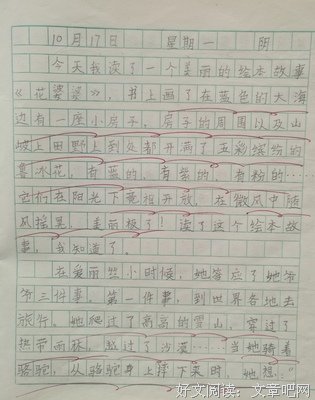 10月17日 星期一 阴
今天我读了一个美丽的绘本故事
《花婆婆》,书上画了在蓝色的大海
边有一座小房子,房子的周围以及山
坡上田野上到处都开满了五彩缤纷的
鲁冰花,有蓝的、有紫的、有粉的……
它们在阳光下竞相开放,在微风中随
风摇晃,美丽极了!读了这个绘本故
事,我知道了。
在爱丽丝小时候,她答应了她爷
爷三件事。第一件事,到世界各地去
旅行。她爬过了高高的雪山,穿过了
热带雨林,越过了沙漠……当她骑着
骆驼,从骆驼身上摔下来时,她想:“
好文阅读:文章吧网